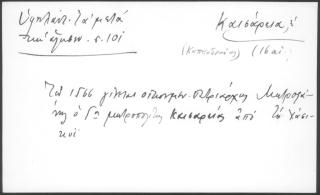 Ὑψηλάντ. Τὰ μετὰ
τὴν ἅλωσιν. σ. 101
Καισάρεια, ἡ
(Καππαδοκίας) (16 αἰ.)
Τῷ 1566 γίνεται οἰκουμεν. Πατριάρχης Μητροφά-
νης ὁ Γʹ μητροπολίτης Καισαρείας ἀπὸ